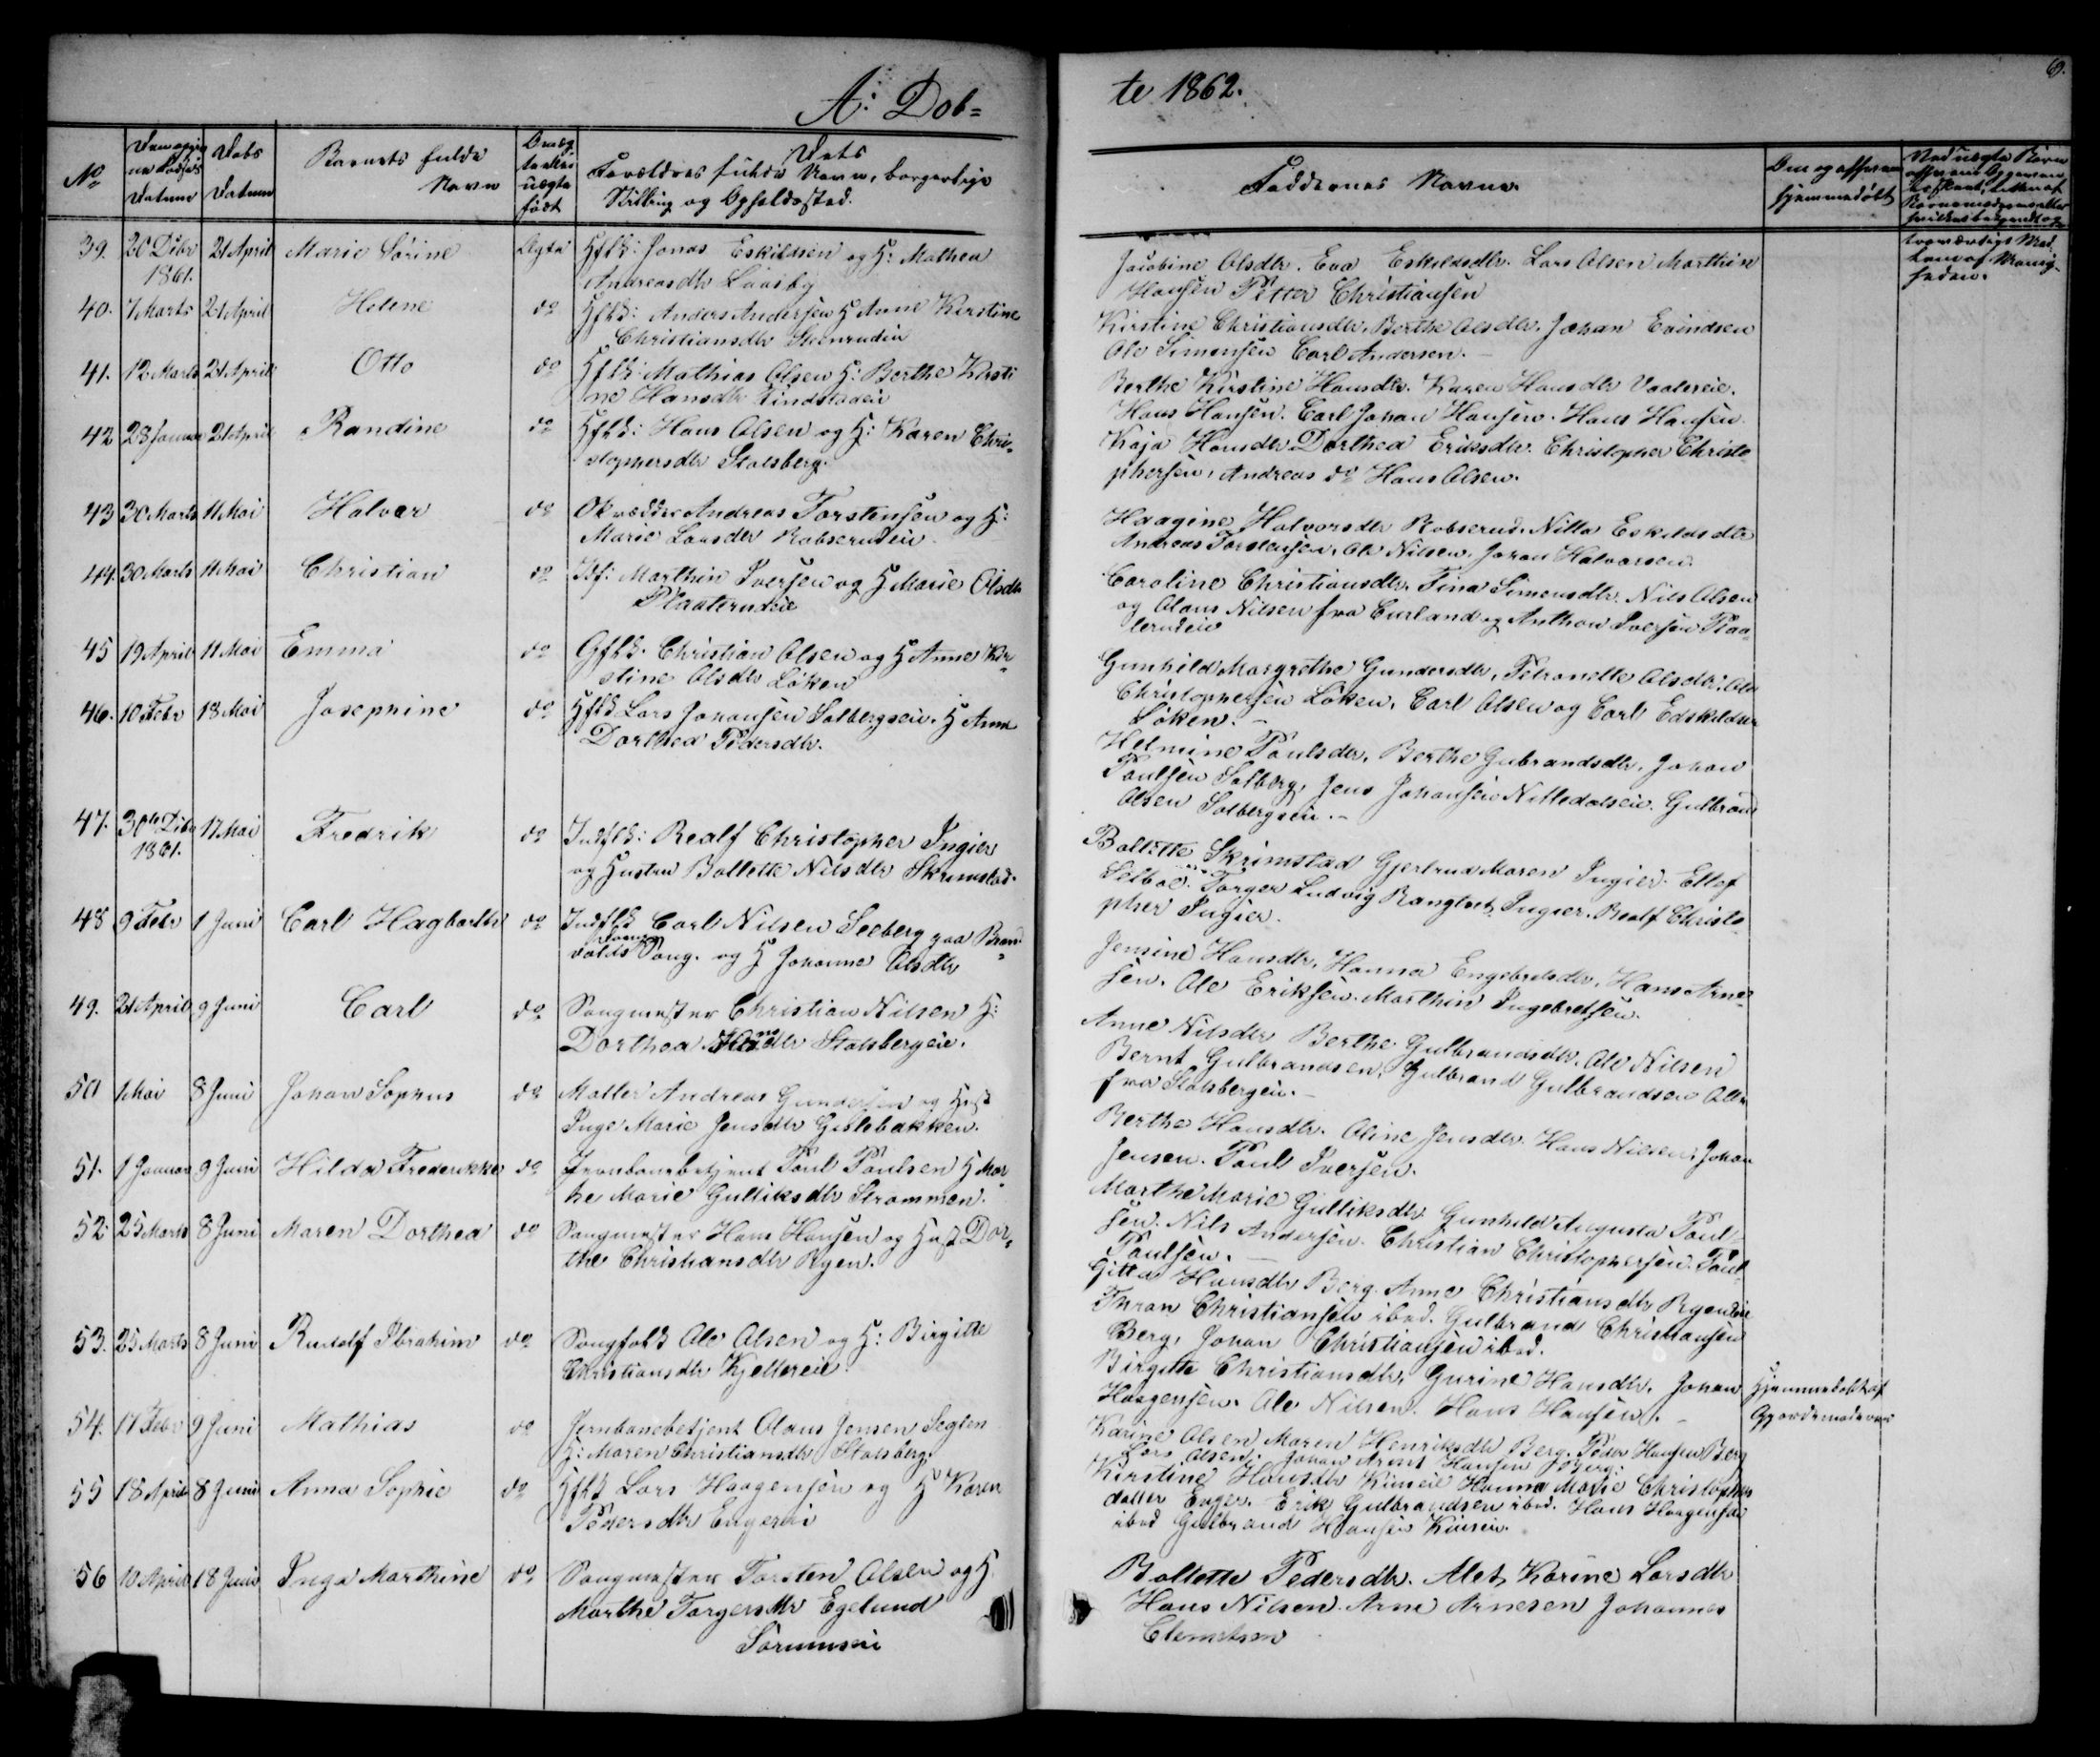 A. Döb=
te 1862.
6.
No
Datum
Daabs
Datum
Barnets fulde
Navn
Forældres fulde Navn, borgerlige
Stilling og Opholdssted.
Faddernes Navne.
hjemmedøbt
39. 20 Debr 21 April Marie Sørine Ægte Hfbk: Jonas Eskildsen og H: Mathea
1861. Andreasdtr
Jacobine Olsdtr. Eva Eskildsdtr. Lars Olsen Marthin
Hansen Petter Christiansen
40. 7 Marts 21 April Helene do Hfbk: Anders Andersen H Anne Kirstine
Christiansdtr
Kirstine Christiansdtr. Berthe Olsdtr. Johan Evindsen
Ole Simensen Carl Andersen.
41. 12 Marts 21 April Otto do Hfbk. Mathias Olsen H: Berthe Kirsti
ne Hansdtr
Berthe Kirstine Hansdtr. Karen Hansdtr
Hans Hansen. Carl Johan Hansen. Hans Hansen.
42 28 Januar 21 April Randine do Hfbk: Hans Olsen og H: Karen Chri=
stophersdtr Stalsberg.
Kaja Hansdtr Dorthea Eriksdtr. Christopher Christo=
phersen, Andreas do Hans Olsen.
43 30 Marts 11 Mai Halvor do Andreas Torstensen og H:
Marie Larsdtr Robserudeie
Haagine Halvorsdtr Robserud. Nilla Eskildsdtr
Andreas Torstensen, Ole Nilsen. Johan Halvorsen.
44. 30 Marts 11 Mai Christian do Marthin Iversen og H Marie Olsdtr
Plaaterudeie
Caroline Christiansdtr. Tina Simensdtr. Nils Olsen
og Olaus Nilsen fra og Anthon Iversen Plaa=
terudeie
45 19 April 11 Mai Emma do Gfbk. Christian Olsen og H Anne Kir=
stine Olsdtr Løken
Gunhild Margrethe Gundersdtr, Petronelle Olsdtr. Ole
Christophersen Løken. Carl Olsen og Carl Edskildsen
Løken.
46. 10 Febr 18 Mai Josephine do Hfbk Lars Johansen Solbergseie. H Anne
Dorthea Pedersdtr.
Helmine Paulsdtr. Berthe Gubrandsdtr. Johan
Paulsen Solberg, Jens Johansen Gulbrand
Olsen Solbergseie.
47. 30te Debr 17 Mai Fredrik do Indfbk: Realf Christopher Ingier
1861. og Hustru Bollette Nilsdtr Skrimstad.
Bollette Skrimstad Gjertrud Maren Ingier. Ellef
Torger Ludvig Ingier. Realf Christo=
pher Ingier.
48 9 Febr 1 Juni Carl Hagbarth do Indfbk Carl Nilsen Seeberg paa Bran=
volds og H Johanne Olsdtr
Jensine Hansdtr. Hanna Engebretsdtr. Hans Arne=
sen. Ole Eriksen. Marthin Ingebretsen.
49. 21 April 9 Juni Carl do Saugmester Christian Nilsen H:
Dorthea Stalsbergeie.
Anne Nilsdtr Berthe Gulbrandsdtr. Ole Nilsen
Bernt Gulbrandsen. Gulbrand Gulbrandsen Alle
fra Stalsbergeie.
50 1 Mai 8 Juni Johan Sophus do Møller Andreas Gundersen og Hust
Inge Marie Jensdtr Gislebakken.
Berthe Hansdtr. Oline Jensdtr. Hans Nilsen, Johan
Jensen. Paul Iversen.
51. 1 Januar 9 Juni Hilda Frederikke do Jernbanebetjent Paul Paulsen H Mar
the Marie Gulliksdtr Strømmen.
Marthe Marie Gulliksdtr Gunhild Augusta Paul=
sen. Nils Andersen. Christian Christophersen. Paul
Paulsen.
52. 25 Marts 8 Juni Maren Dorthea do Saugmester Hans Hansen og Hust Dor=
the Christiansdtr Ryen.
Gitta Hansdtr Berg. Anne Christiansdtr
Christiansen ibid. Gulbrand Christiansen
Berg. Johan Christiansen ibid.
53. 25 Marts 8 Juni Rudolf Ibrahim do Saugfolk Ole Olsen og H: Birgitte
Christiansdtr Kjellereie.
Birgitte Christiansdtr, Gurine Hansdtr. Johan
Haagensen. Ole Nilsen. Hans Hansen.
Hjemmedøbt af
Gjordemoderen
54. 17 Febr 9 Juni Mathias do Jernbanebetjent Olaus Jensen
H: Maren Christiansdtr Stalsberg.
Karine Olsen Maren Henriksdtr Berg. Peder Hansen Berg
Lars Olsen. Johan Arent Hansen Berg.
55 18 April 8 Juni Anna Sophie do Hfbk Lars Haagensen og H Karen
Pedersdtr Engereie
Kirstine Hansdtr Hanna Marie Christophers
datter Enger. Erik Gulbrandsen ibid. Hans Haagensen
ibid Gulbrand Hansen
56 10 April 18 Juni Inga Marthine do Saugmester Torsten Olsen og H.
Marthe Torgersdtr Egelund
Sørumseie
Bollette Pedersdtr. Alet Karine Larsdtr
Hans Nilsen. Arne Arnesen Johannes
Clemetsen